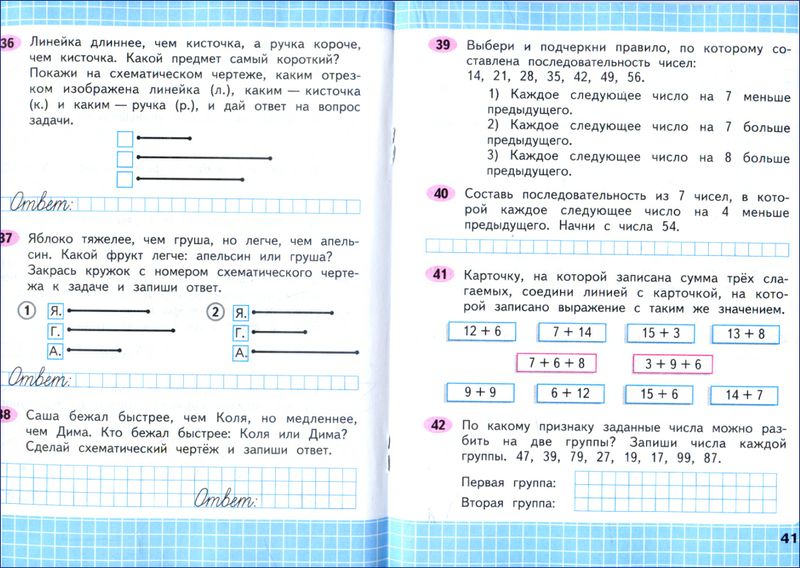 36 Линейка длиннее, чем кисточка, а ручка короче,
чем кисточка. Какой предмет самый короткий?
Покажи на схематическом чертеже, каким отрез-
ком изображена линейка (л.), каким — кисточка
(к.) и каким — ручка (р.), и дай ответ на вопрос
задачи.
Ответ:
37 Яблоко тяжелее, чем груша, но легче, чем апель-
син. Какой фрукт легче: апельсин или груша?
Закрась кружок с номером схематического черте-
жа к задаче и запиши ответ.
1 Я. 2 Я.
Г. Г.
А. А.
Ответ:
38 Саша бежал быстрее, чем Коля, но медленнее,
чем Дима. Кто бежал быстрее: Коля или Дима?
Сделай схематический чертёж и запиши ответ.
Ответ:
39 Выбери и подчеркни правило, по которому со-
ставлена последовательность чисел:
14, 21, 28, 35, 42, 49, 56.
1) Каждое следующее число на 7 меньше
предыдущего.
2) Каждое следующее число на 7 больше
предыдущего.
3) Каждое следующее число на 8 больше
предыдущего.
40 Составь последовательность из 7 чисел, в кото-
рой каждое следующее число на 4 меньше
предыдущего. Начни с числа 54.
41 Карточку, на которой записана сумма трёх сла-
гаемых, соедини линией с карточкой, на кото-
рой записано выражение с таким же значением.
12 + 6 7 + 14 15 + 3 13 + 8
7 + 6 + 8 3 + 9 + 6
9 + 9 6 + 12 15 + 6 14 + 7
42 По какому признаку заданные числа можно раз-
бить на две группы? Запиши числа каждой
группы. 47, 39, 79, 27, 19, 17, 99, 87.
Первая группа:
Вторая группа:
41